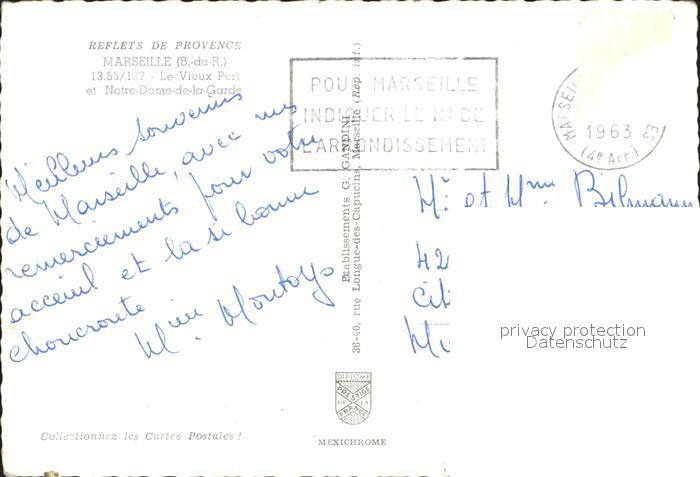 REFLETS DE PROVENCE
MARSEILLE (B.-du-R.)
13.55/137 - Le Vieux Port
et Notre-Dame-de-la-Garde
Meilleurs souvenirs
de Marseille, avec nos
remerciements pour votre
acceuil et la si bonne
choucroute
Collectionnez les Cartes Postales !
Etablissements G. GANDINI
36-40, rue Longue-des-Capucins, Marseille (Rep. int.)
DIPLOME
PRESTIGE
DE LA
FRANCE
MEXICHROME
POUR MARSEILLE
INDIQUER LE No DE
L'ARRONDISSEMENT
MARSEILLE
1963
(4e Arr.)
Mr et Mme
42
privacy protection
Datenschutz